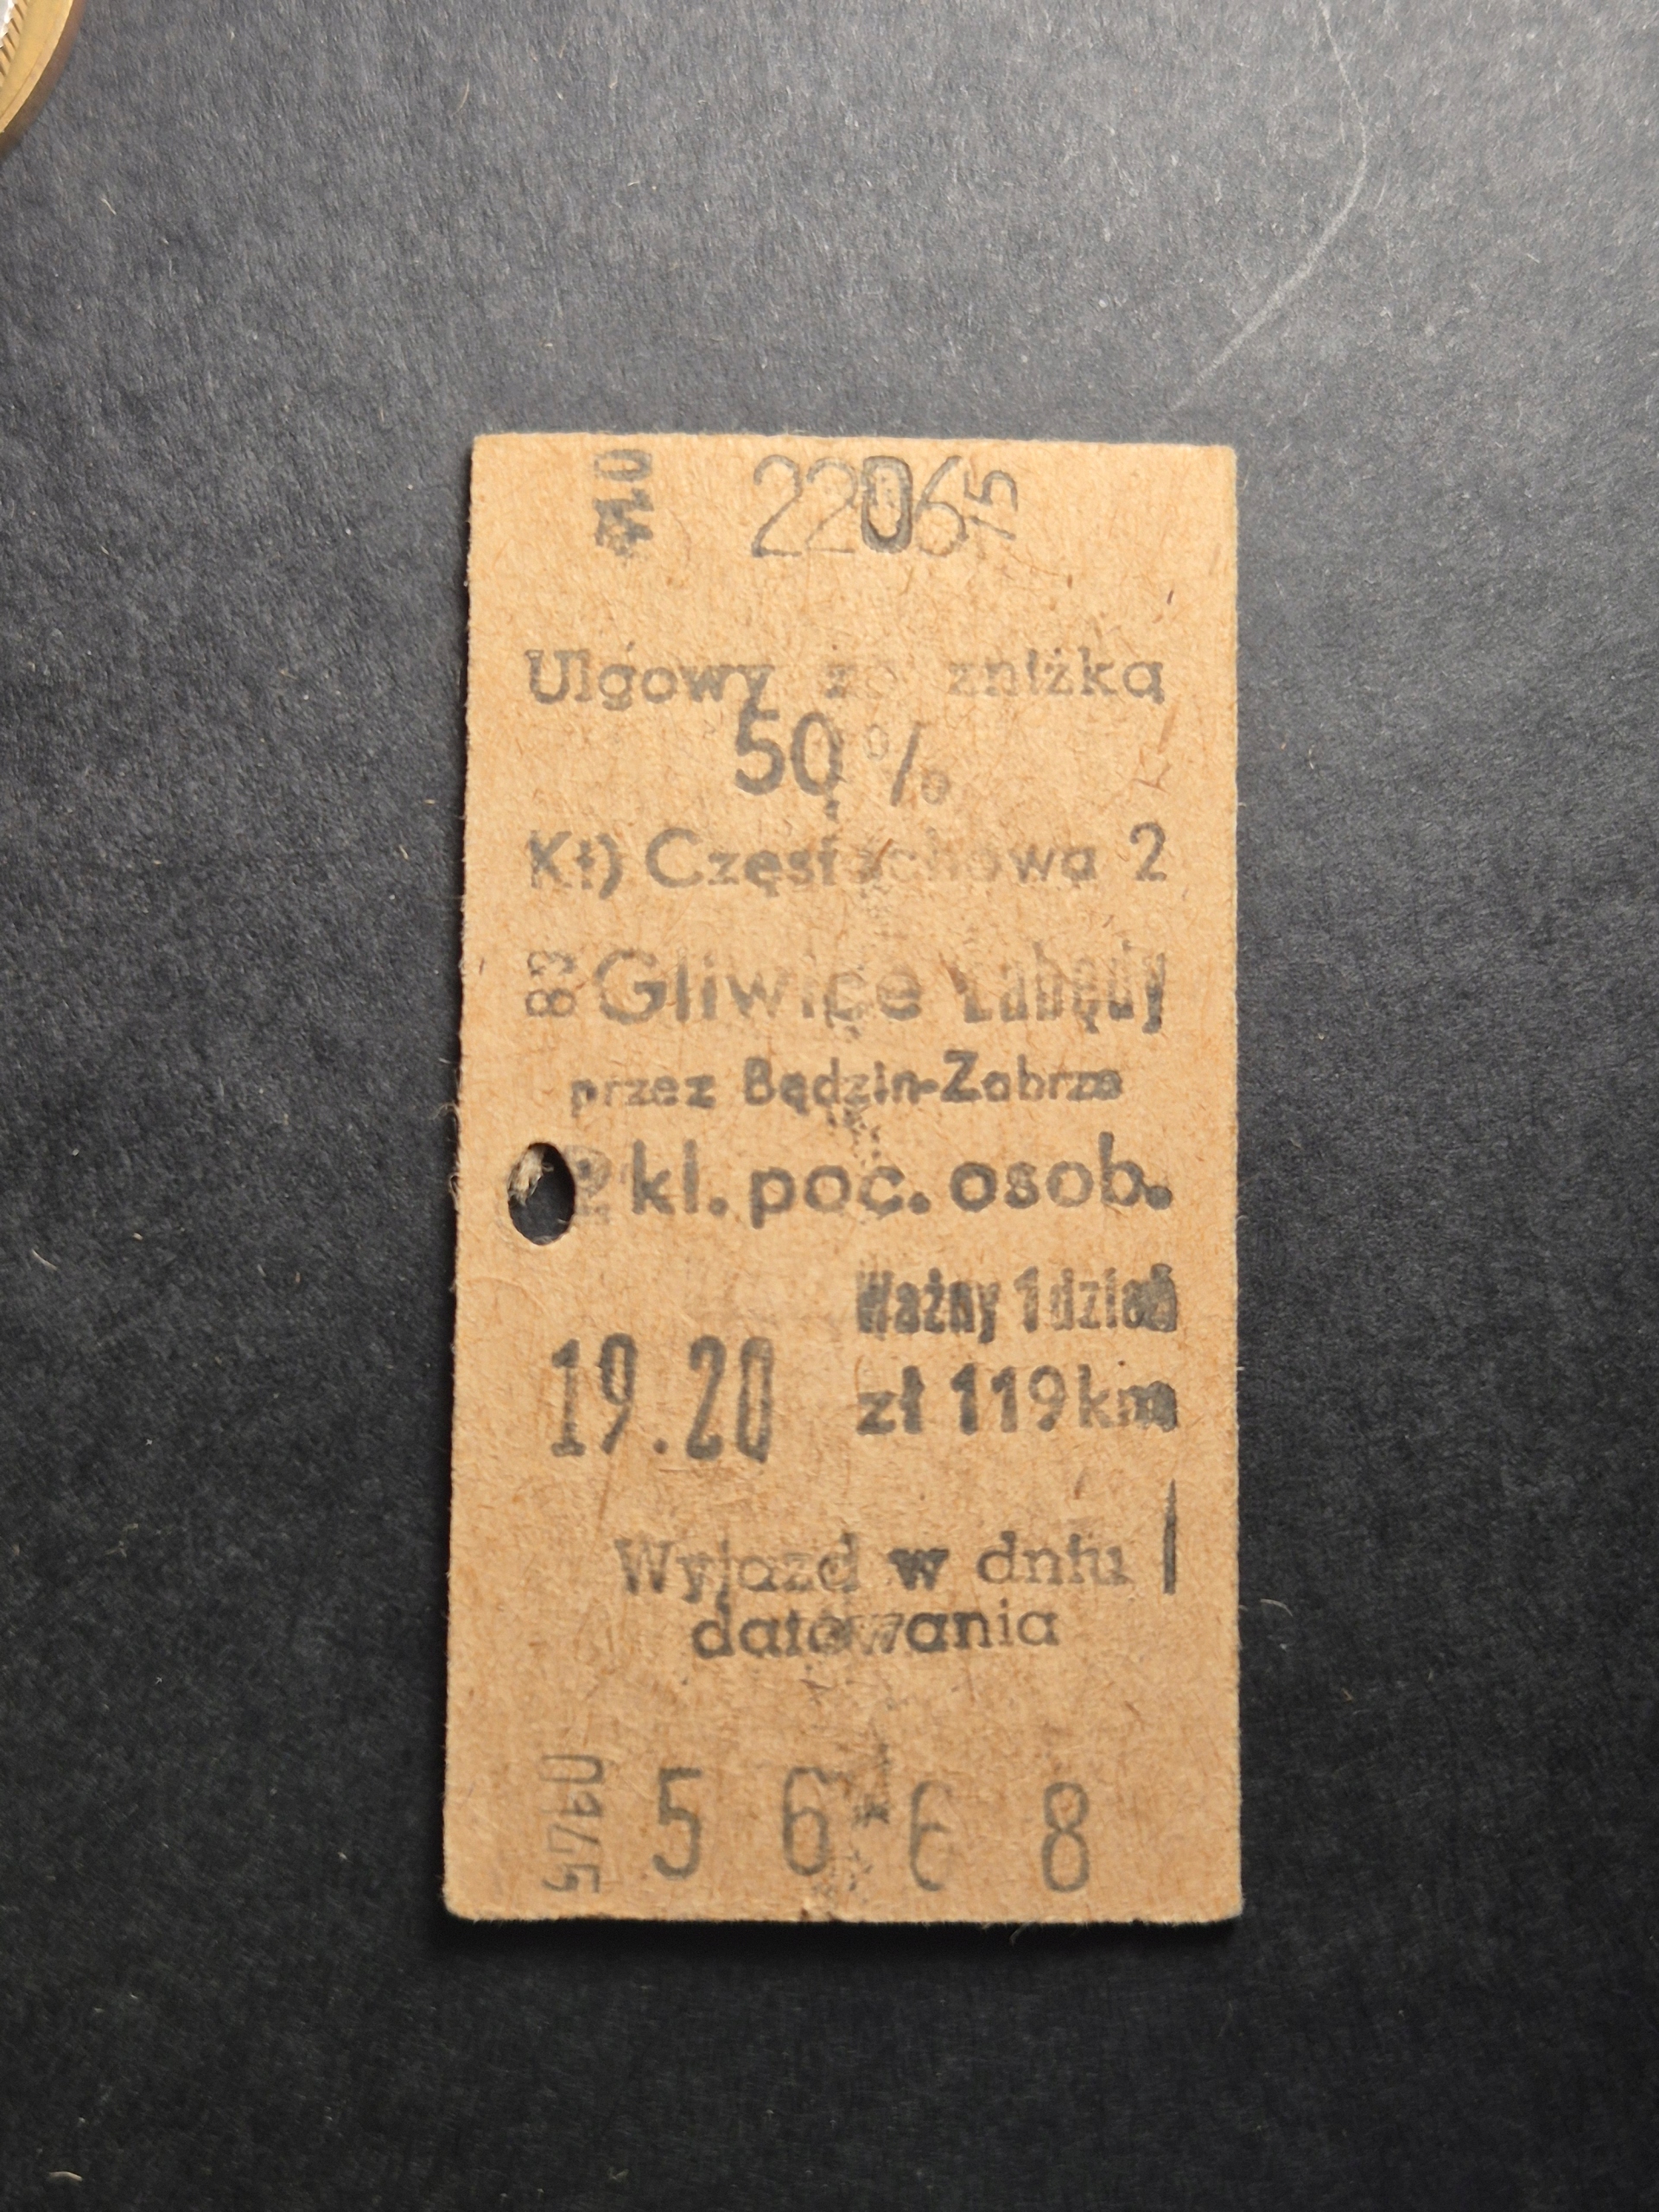 2206 15
Ulgowy ze zniżką
50 %
Kt) Częstochowa 2
83 Gliwice Łabędy
przez Będzin-Zabrze
2 kl. poc. osob.
Ważny 1 dzień
19.20 zł 119 km
Wyjazd w dniu
datowania
5 6 6 8